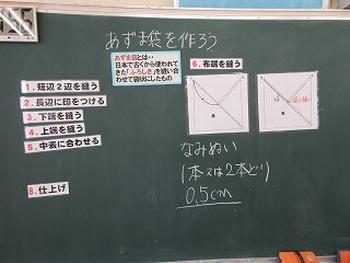 あずま袋を作ろう
あずま袋とは‥
日本で古くから使われて
きた「ふろしき」を縫い合
わせて袋状にしたもの
1.短辺2辺を縫う
2.長辺に印をつける
3.下端を縫う
4.上端を縫う
5.中表に合わせる
8.仕上げ
6.布端を縫う
なみぬい
(1本又は2本どり)
0.5cm